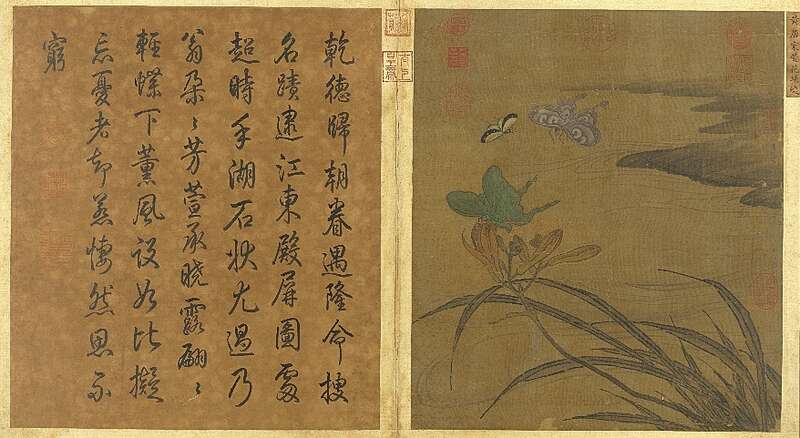 乾德歸朝眷遇隆命搜
名蹟逮江東殿屏圖處
超時手湖石狀尤過乃
翁朶〻芳萱承曉露翩〻
輕蝶下薰風設如比擬
忘憂者却惹悽然思不
窮